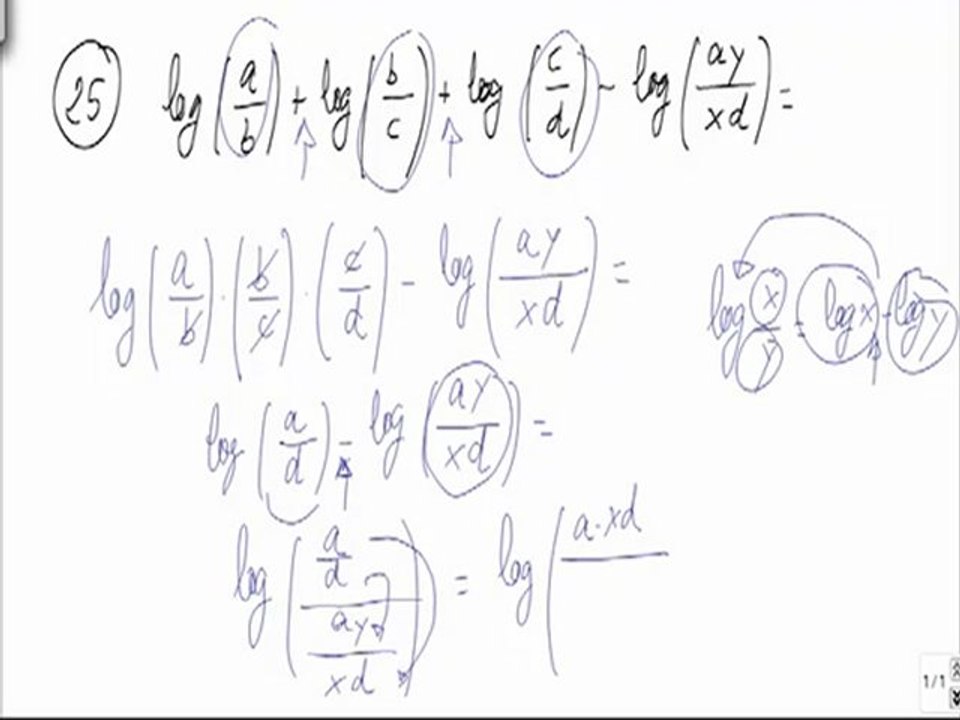 25 log(a/b) + log(b/c) + log(c/d) - log(ay/xd) =
log(a/b)·(b/c)·(c/d) - log(ay/xd) =
log x/y = log x - log y
log(a/d) - log(ay/xd) =
log((a/d)/(ay/xd)) = log(a·xd
1/1